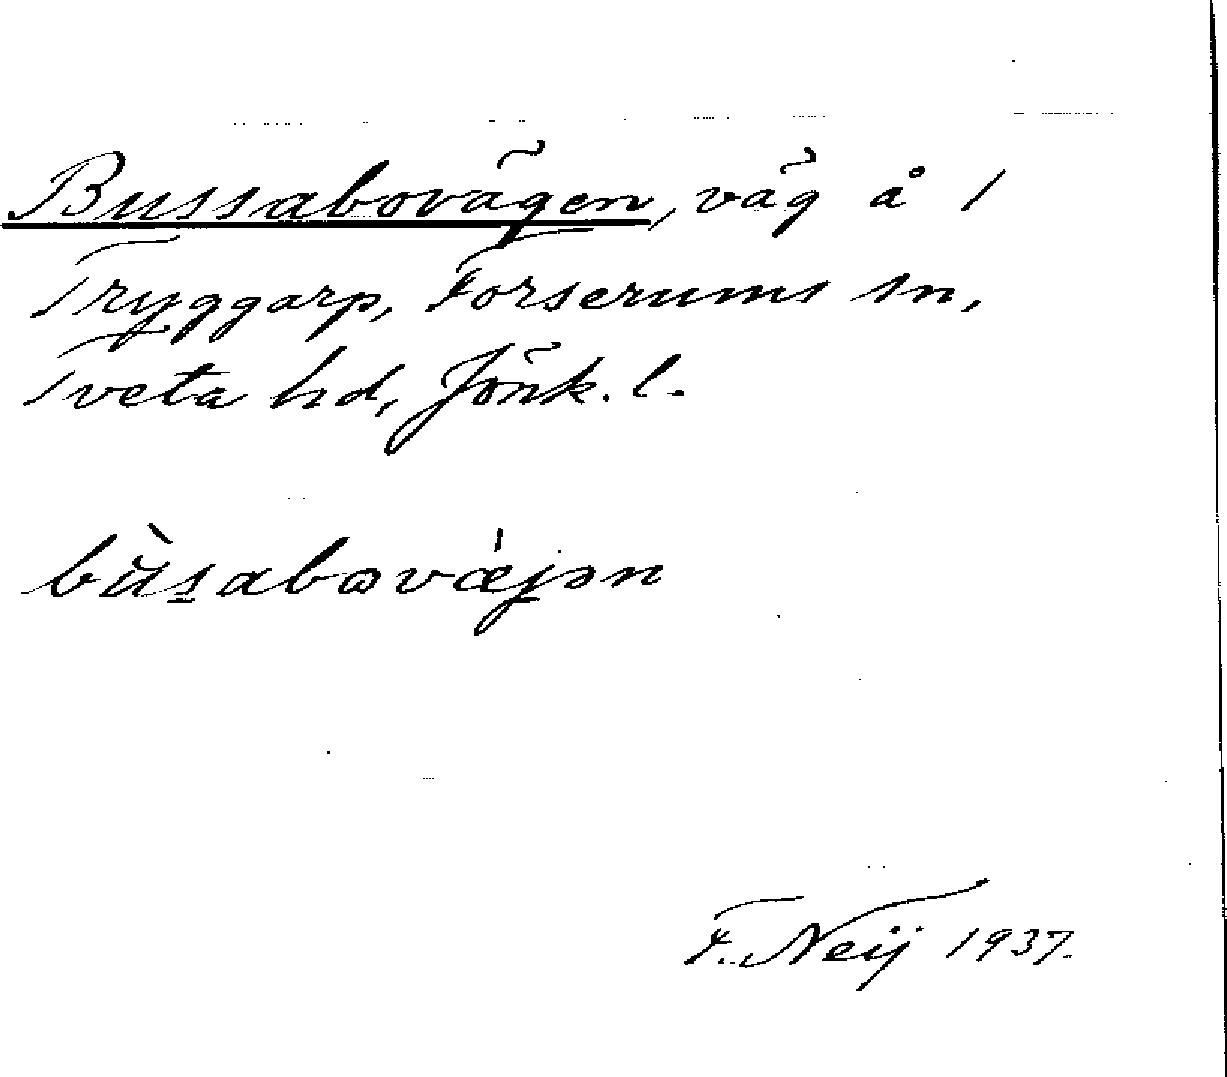 Bussabovägen, väg å 1
Tryggarp, Forserums sn,
Tveta hd, Jönk. l.
bùs̱abovǽjən
F. Neij 1937.